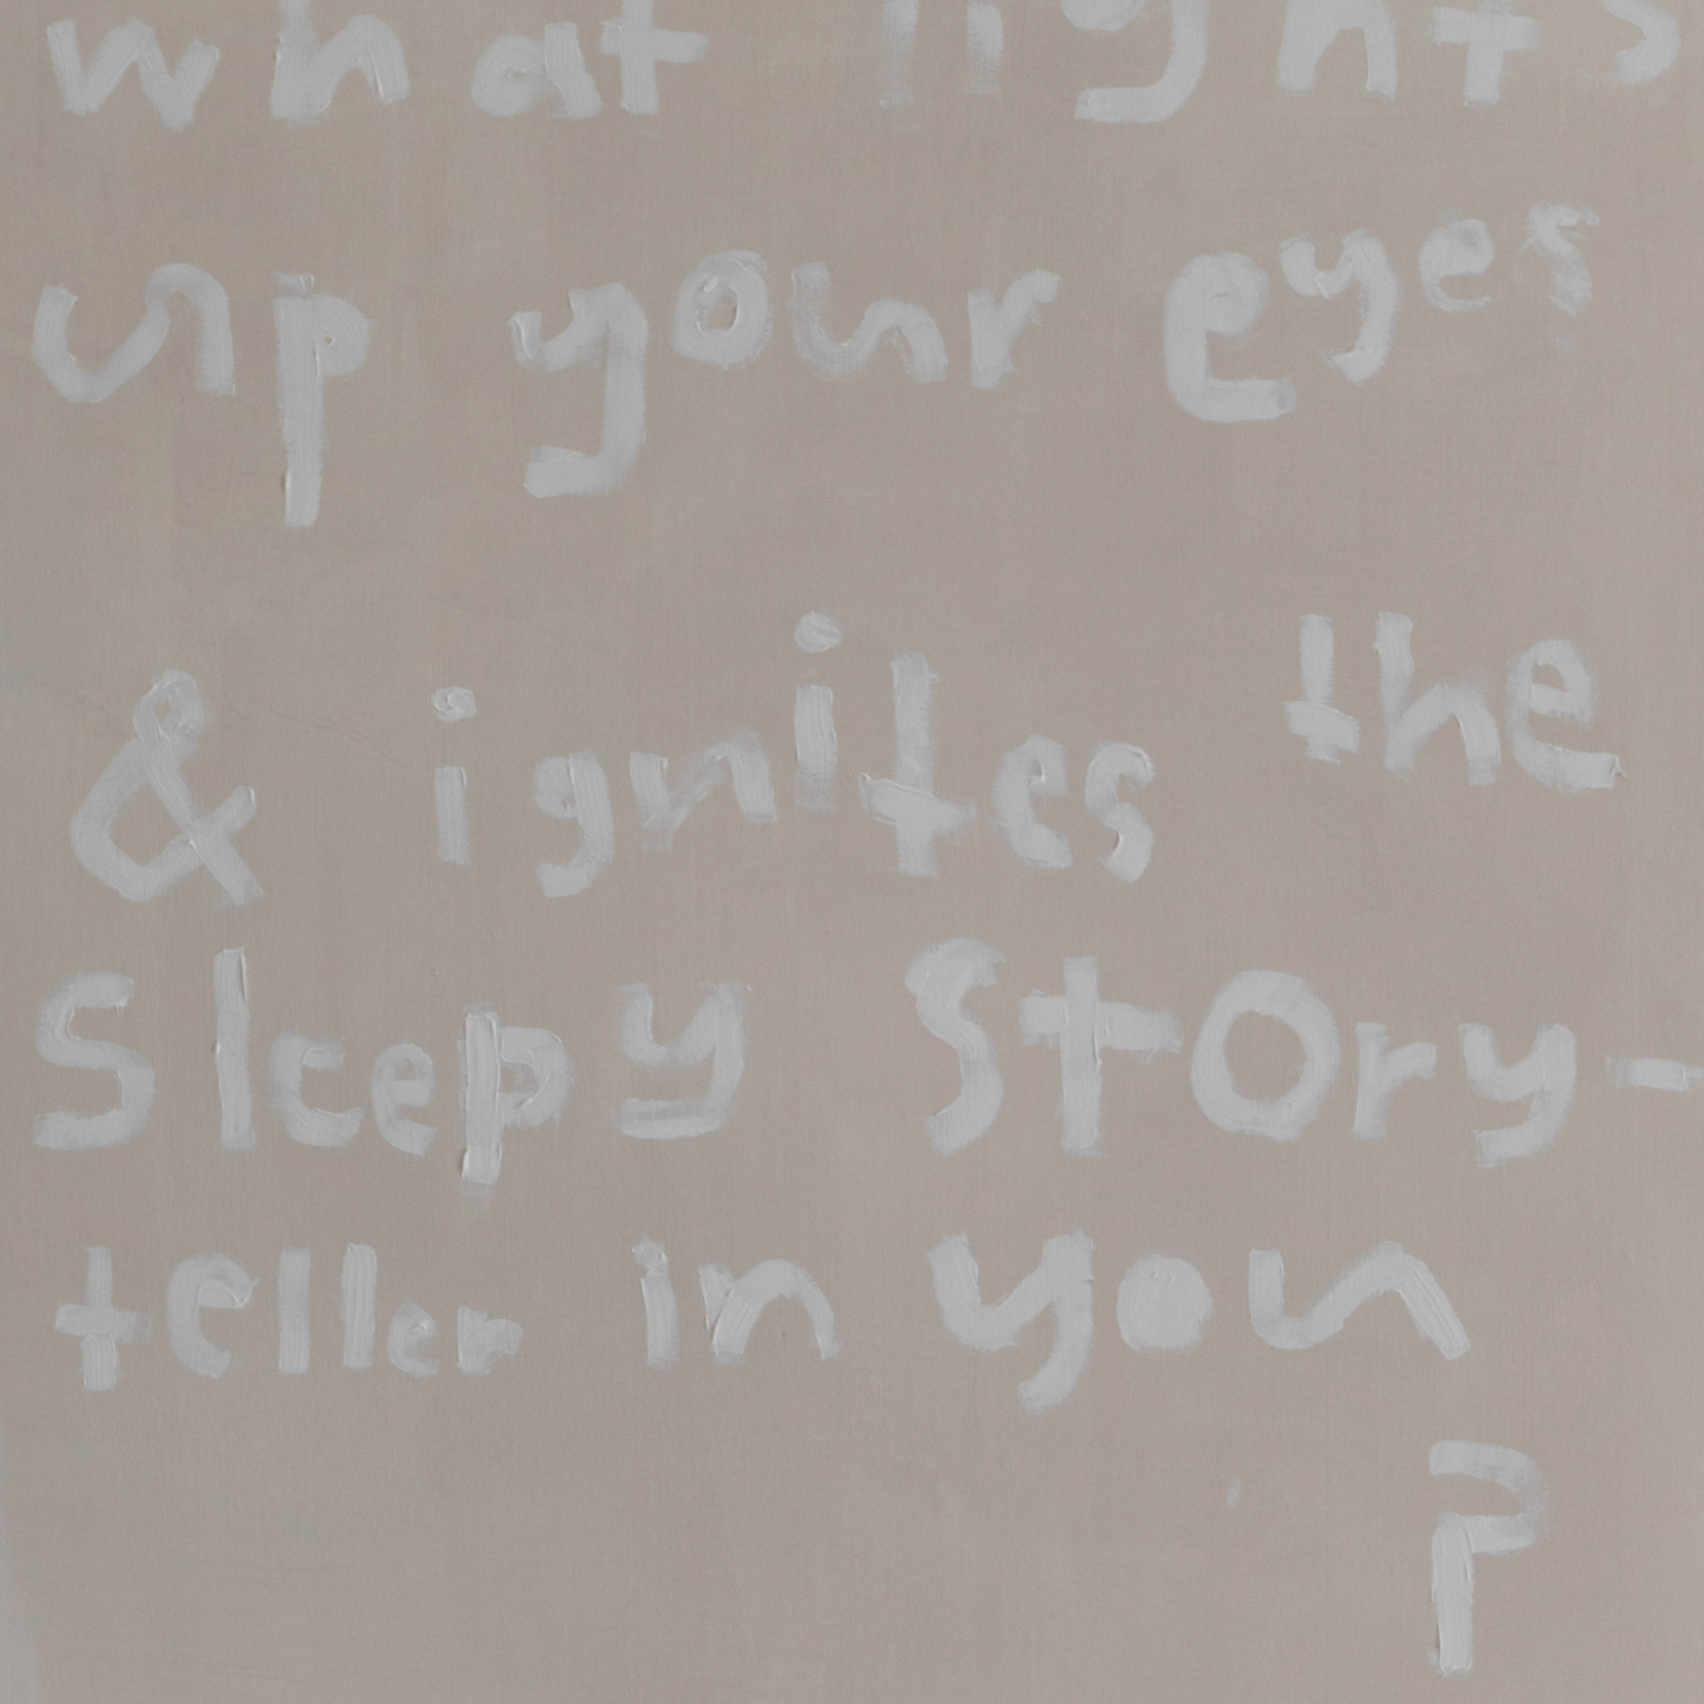 what lights
up your eyes
& ignites the
Sleepy Story-
teller in you
?